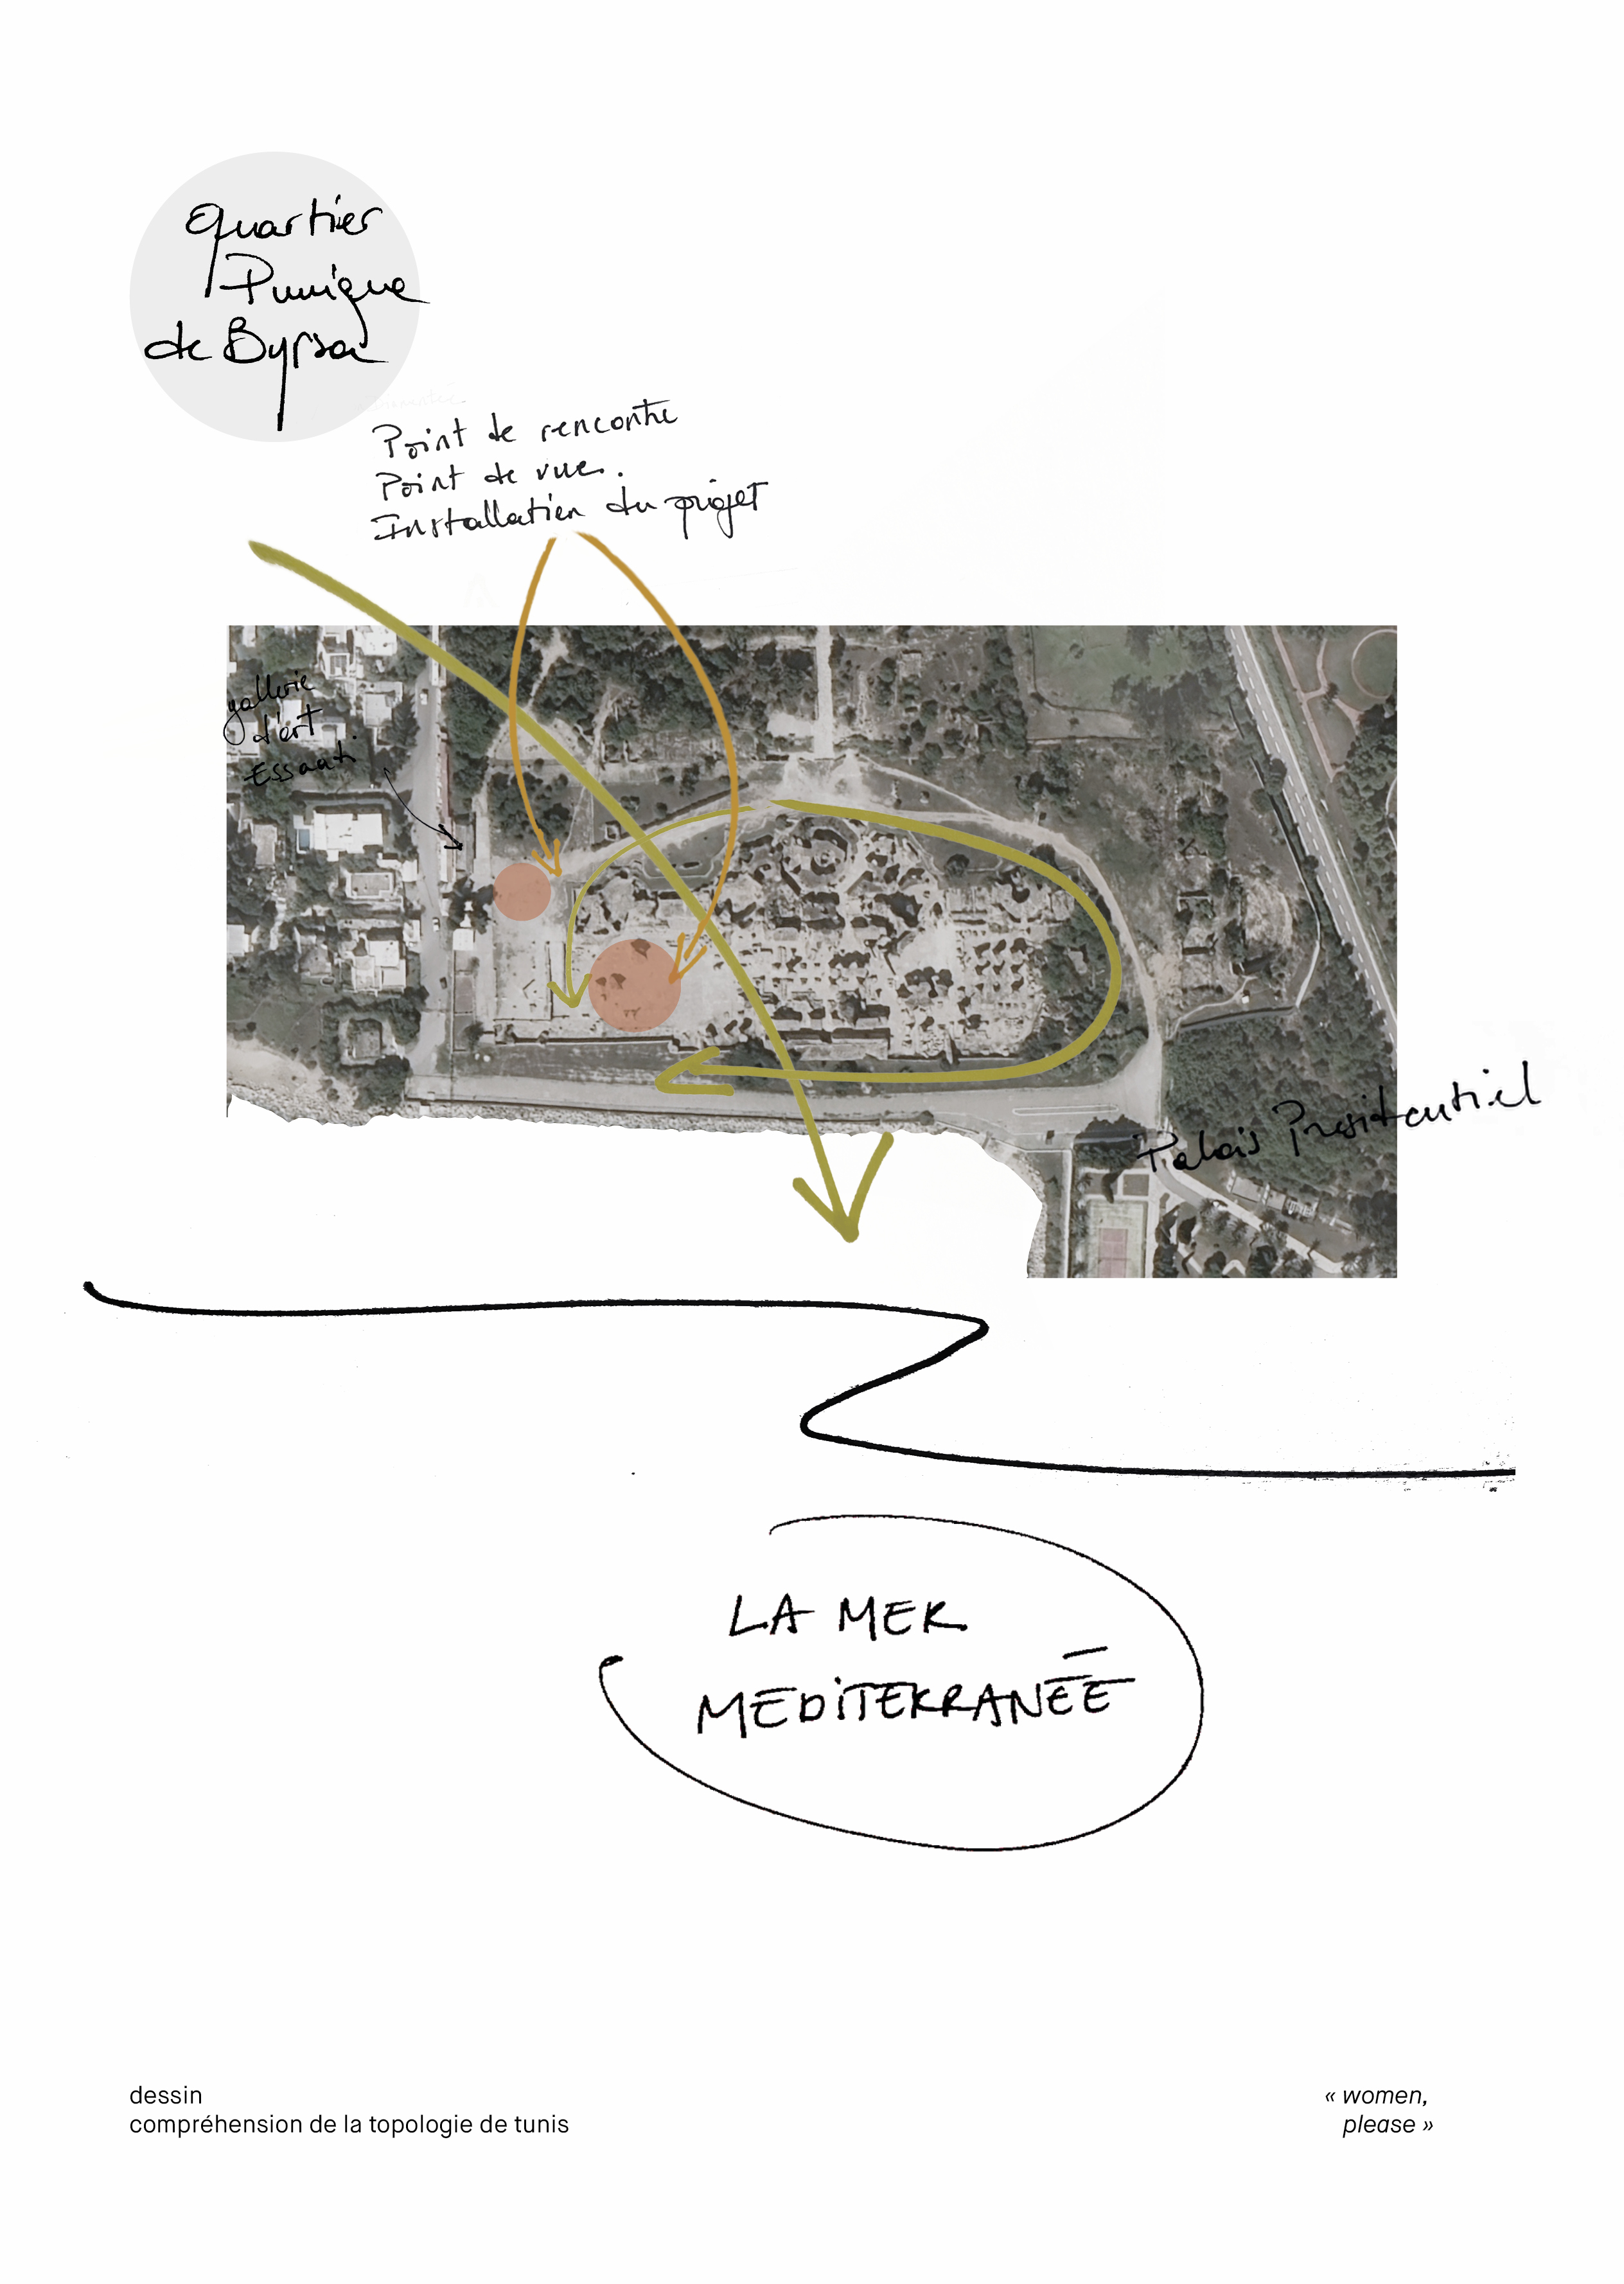 quartier
Punique
de Byrsa
Point de rencontre
Point de vue.
Installation du projet
gallerie
d'art
Essaadi
Palais Presidentiel
LA MER
MEDITERRANÉE
dessin
compréhension de la topologie de tunis
« women,
please »